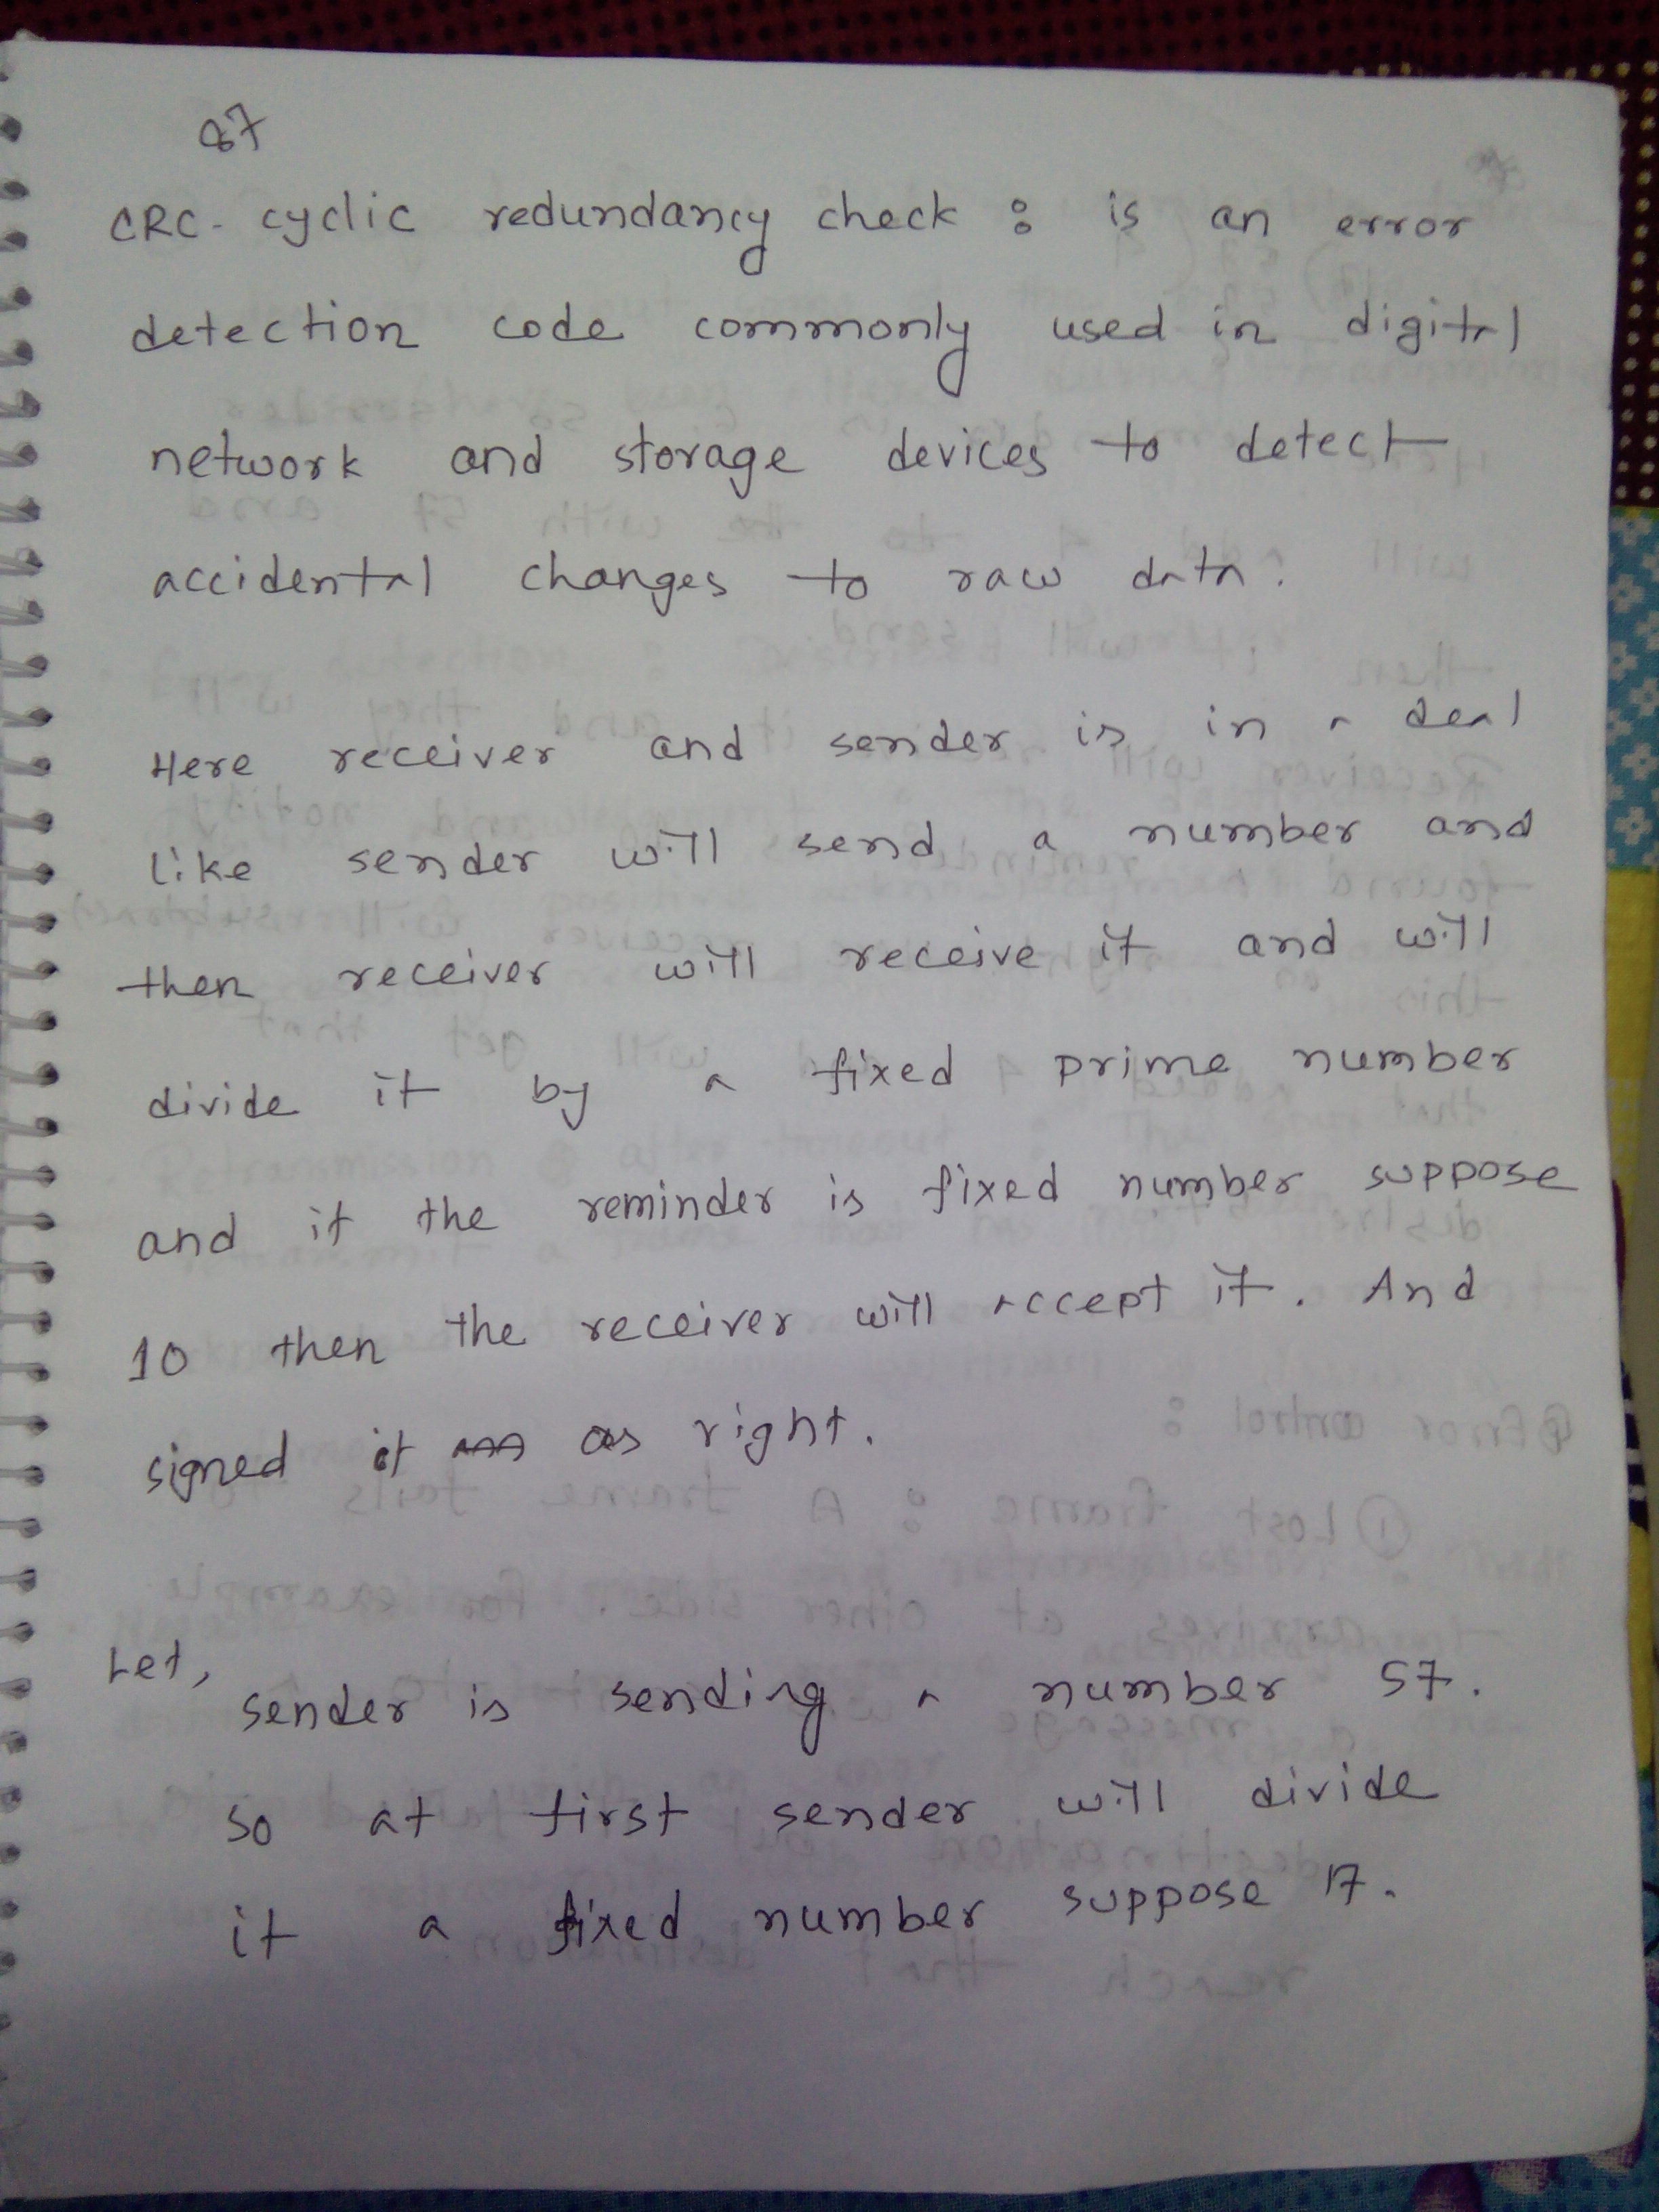 87
CRC- cyclic redundancy check : is an error
detection code commonly used in digital
network and storage devices to detect
accidental changes to raw data.
Here receiver and sender is in a deal
like sender will send a number and
then receiver will receive it and will
divide it by a fixed prime number
and if the reminder is fixed number suppose
10 then the receiver will accept it. And
signed it as right.
Let,
sender is sending a number 57.
so at first sender will divide
it a fixed number suppose 17.